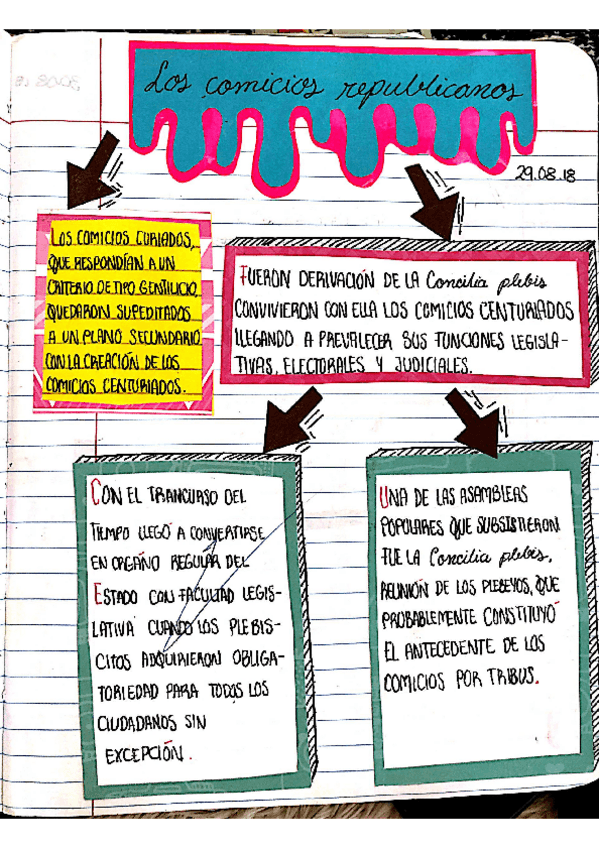 Los comicios republicanos
29.08.18
LOS COMICIOS CURIADOS,
QUE RESPONDÍAN A UN
CRITERIO DE TIPO GENTILICIO,
QUEDARON SUPEDITADOS
A UN PLANO SECUNDARIO
CON LA CREACIÓN DE LOS
COMICIOS CENTURIADOS.
FUERON DERIVACIÓN DE LA Concilia plebis
CONVIVIERON CON ELLA LOS COMICIOS CENTURIADOS
LLEGANDO A PREVALECER SUS FUNCIONES LEGISLA-
TIVAS, ELECTORALES Y JUDICIALES.
CON EL TRANCURSO DEL
TIEMPO LLEGÓ A CONVERTIRSE
EN ORGANO REGULAR DEL
ESTADO CON FACULTAD LEGIS-
LATIVA CUANDO LOS PLEBIS-
CITOS ADQUIRIERON OBLIGA-
TORIEDAD PARA TODOS LOS
CIUDADANOS SIN
EXCEPCIÓN.
UNA DE LAS ASAMBLEAS
POPULARES QUE SUBSISTIERON
FUE LA Concilia plebis,
REUNIÓN DE LOS PLEBEYOS, QUE
PROBABLEMENTE CONSTITUYÓ
EL ANTECEDENTE DE LOS
COMICIOS POR TRIBUS.